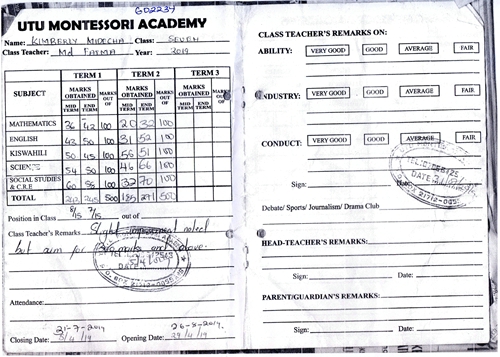 GD2237
UTU MONTESSORI ACADEMY
Name: KIMBERLY MIDECHA Class: SEVEN
Class Teacher: Md FATMA Year: 2019
SUBJECT TERM 1 TERM 2 TERM 3
MARKS OBTAINED MARKS OUT OF MARKS OBTAINED MARKS OUT OF MARKS OBTAINED MARKS OUT OF
MID TERM END TERM MID TERM END TERM MID TERM END TERM
MATHEMATICS 26 42 100 20 32 100
ENGLISH 43 50 100 31 52 100
KISWAHILI 50 45 100 56 51 100
SCIENCE 54 50 100 46 66 100
SOCIAL STUDIES & C.R.E 60 58 100 32 70 100
TOTAL 245 500 185 271 500
Position in Class 8/15 7/15 out of
Class Teacher's Remarks Slight improvement noted
but aim for marks and above.
Attendance:
Closing Date: 5/4/19 Opening Date: 29/4/19
31-7-2019 26-8-2019
CLASS TEACHER'S REMARKS ON:
ABILITY: VERY GOOD GOOD AVERAGE FAIR
INDUSTRY: VERY GOOD GOOD AVERAGE FAIR
CONDUCT: VERY GOOD GOOD AVERAGE FAIR
Sign: Date:
Debate/ Sports/ Journalism/ Drama Club
HEAD-TEACHER'S REMARKS:
Sign: Date:
PARENT/GUARDIAN'S REMARKS:
Sign: Date: